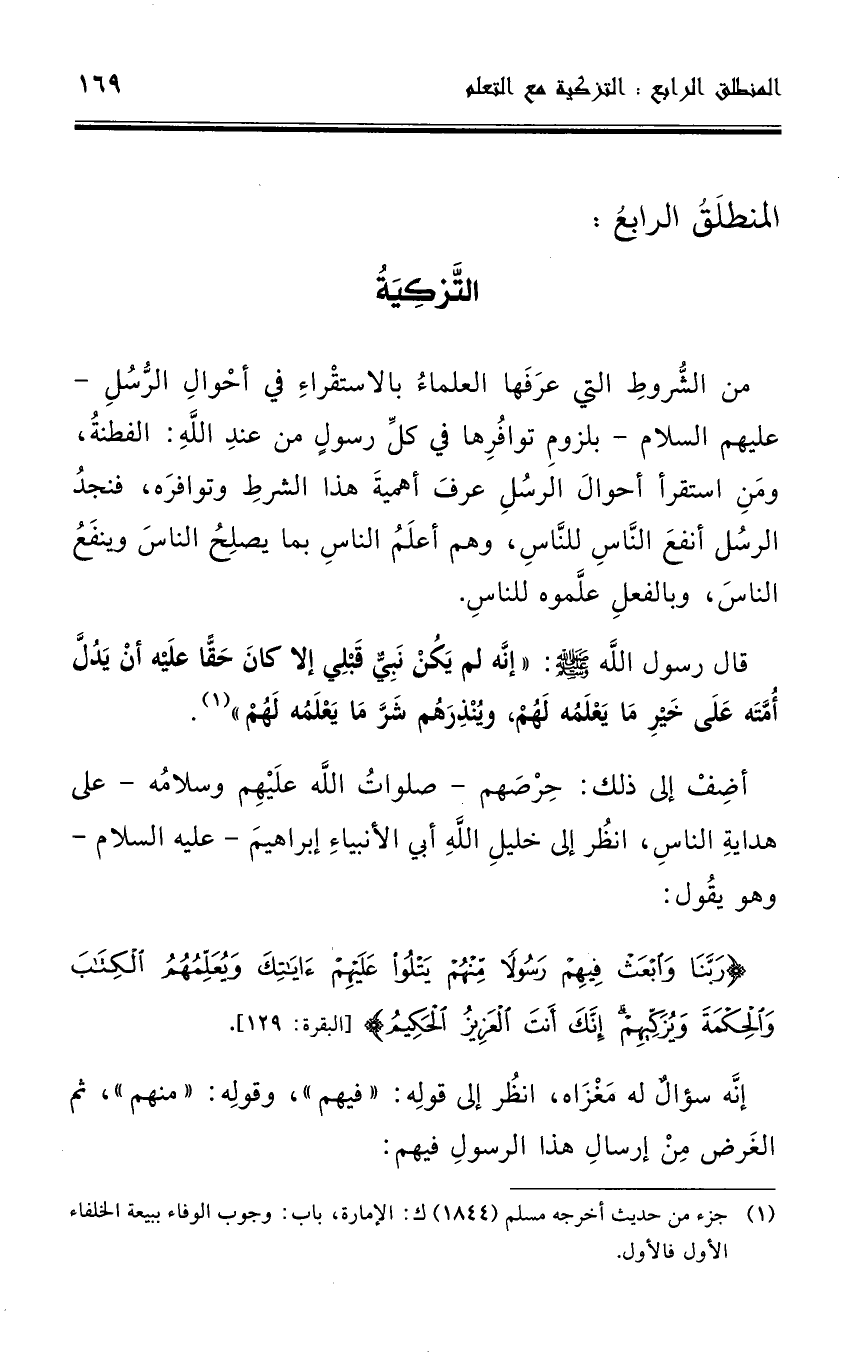 المنطلق الرابع : التزكية مع التعلم ١٦٩
المنطلَقُ الرابعُ :
التَّزكِيَةُ
من الشُّروطِ التي عرَفَها العلماءُ بالاستقْراءِ في أحْوالِ الرُّسُلِ -
عليهم السلام - بلزومِ توافُرِها في كلِّ رسولٍ من عندِ اللَّهِ: الفطنةُ،
ومَنِ استقرأ أحوالَ الرسُلِ عرفَ أهميةَ هذا الشرطِ وتوافرَه، فنجدُ
الرسُل أنفعَ النَّاسِ للنَّاسِ، وهم أعلَمُ الناسِ بما يصلِحُ الناسَ وينفَعُ
الناسَ، وبالفعلِ علَّموه للناسِ.
قال رسول اللَّه ﷺ: «إنَّه لم يَكُنْ نَبِيٌّ قَبْلِي إلا كانَ حَقًّا علَيْه أنْ يَدُلَّ
أُمَّتَه عَلَى خَيْرِ مَا يَعْلَمُه لَهُمْ، ويُنْذِرَهُم شَرَّ مَا يَعْلَمُه لَهُمْ»(١).
أضِفْ إلى ذلك: حِرْصَهم - صلواتُ اللَّه علَيْهِم وسلامُه - على
هدايةِ الناسِ، انظُر إلى خليلِ اللَّهِ أبي الأنبياءِ إبراهيمَ - عليه السلام -
وهو يقُول:
﴿رَبَّنَا وَٱبْعَثْ فِيهِمْ رَسُولًا مِّنْهُمْ يَتْلُوا۟ عَلَيْهِمْ ءَايَٰتِكَ وَيُعَلِّمُهُمُ ٱلْكِتَٰبَ
وَٱلْحِكْمَةَ وَيُزَكِّيهِمْ ۚ إِنَّكَ أَنتَ ٱلْعَزِيزُ ٱلْحَكِيمُ﴾ [البقرة: ١٢٩].
إنَّه سؤالٌ له مَغْزَاه، انظُر إلى قولِه: «فيهم»، وقولِه: «منهم»، ثم
الغَرض مِنْ إرسالِ هذا الرسولِ فيهم:
(١) جزء من حديث أخرجه مسلم (١٨٤٤) ك: الإمارة، باب: وجوب الوفاء ببيعة الخلفاء
الأول فالأول.